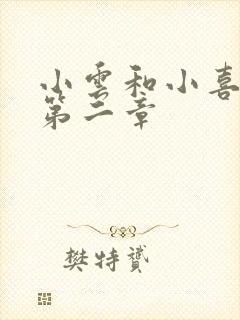 小雲和小喜
第二章
樊特贇